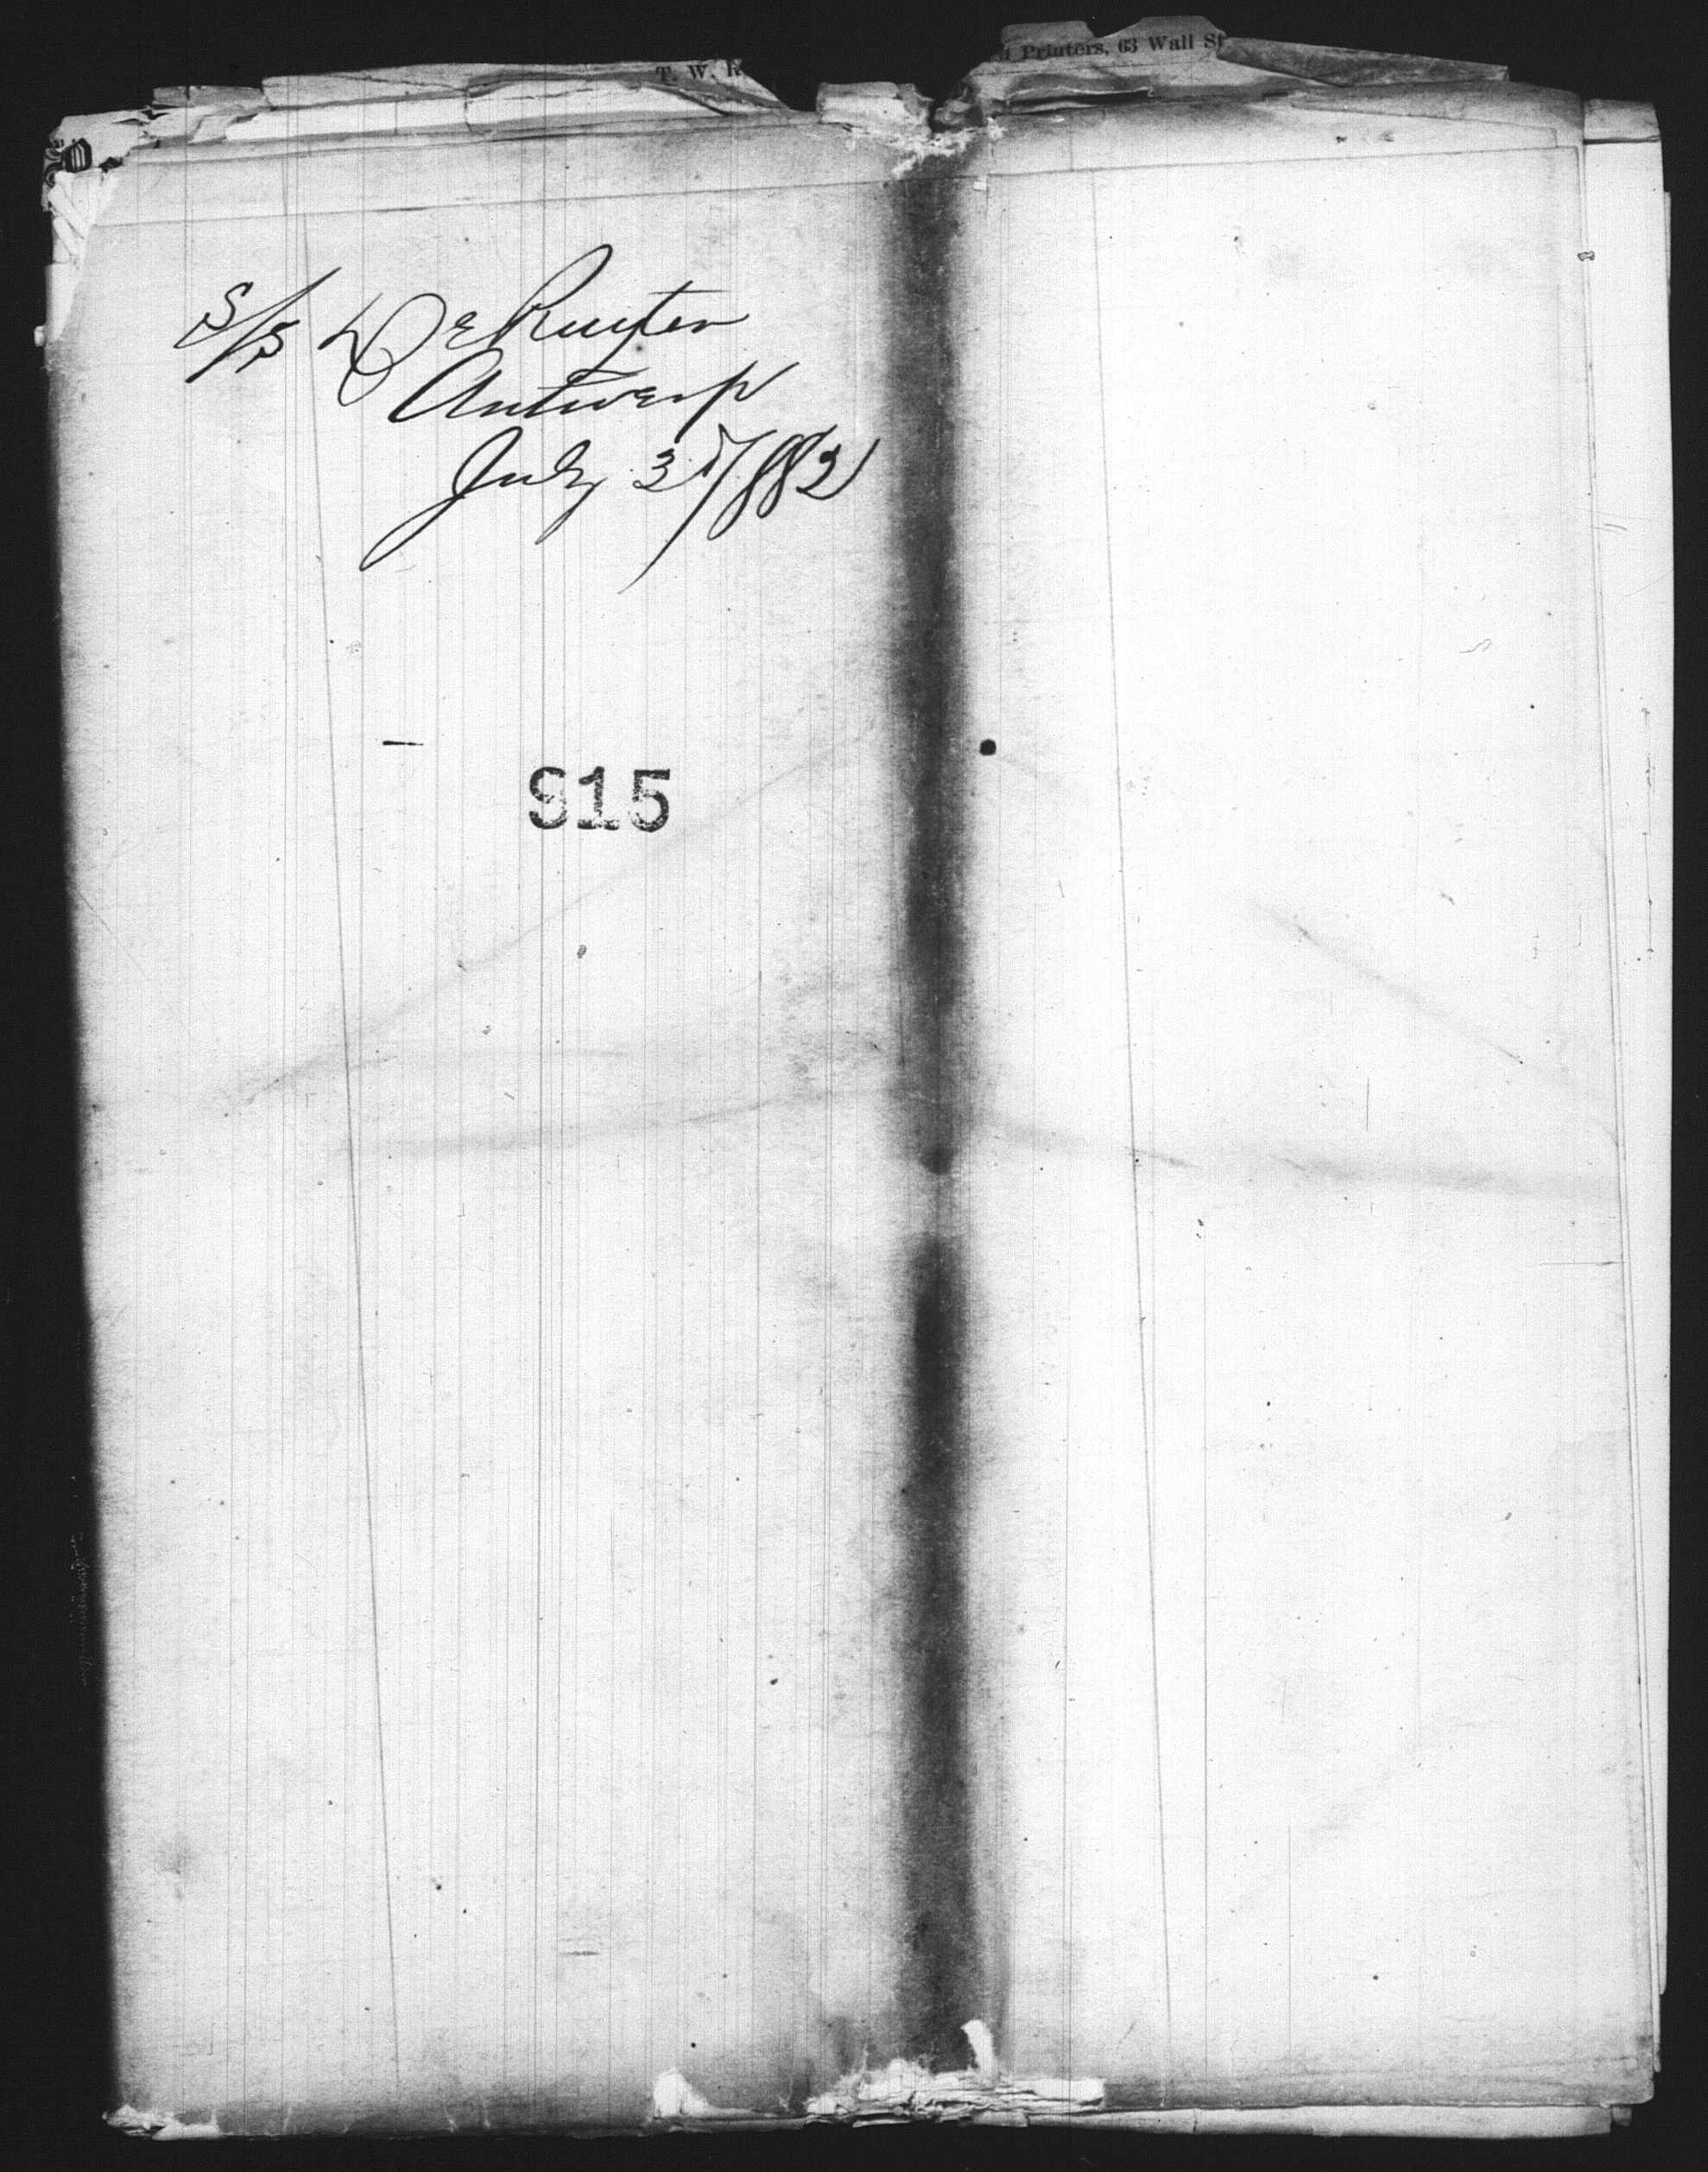 T. W. R
d Printers, 63 Wall St
S/S De Ruyter
Antwerp
July 3rd/1882
915